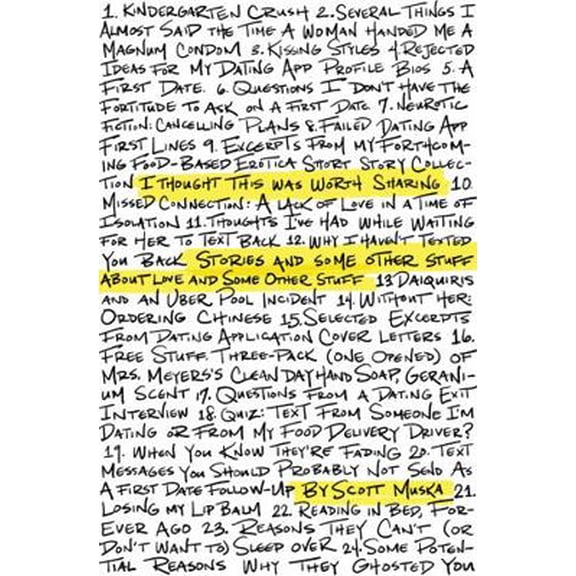 1. KINDERGARTEN CRUSH 2. SEVERAL THINGS I
ALMOST SAID THE TIME A WOMAN HANDED ME A
MAGNUM CONDOM 3. KISSING STYLES 4. REJECTED
IDEAS FOR MY DATING APP PROFILE BIOS 5. A
FIRST DATE. 6. QUESTIONS I DON'T HAVE THE
FORTITUDE TO ASK ON A FIRST DATE 7. NEUROTIC
FICTION: CANCELLING PLANS 8. FAILED DATING APP
FIRST LINES 9. EXCERPTS FROM MY FORTHCOM-
ING FOOD-BASED EROTICA SHORT STORY COLLEC-
TION I THOUGHT THIS WAS WORTH SHARING 10.
MISSED CONNECTION: A LACK OF LOVE IN A TIME OF
ISOLATION 11. THOUGHTS I'VE HAD WHILE WAITING
FOR HER TO TEXT BACK 12. WHY I HAVEN'T TEXTED
YOU BACK STORIES AND SOME OTHER STUFF
ABOUT LOVE AND SOME OTHER STUFF 13 DAIQUIRIS
AND AN UBER POOL INCIDENT 14. WITHOUT HER:
ORDERING CHINESE 15. SELECTED EXCERPTS
FROM DATING APPLICATION COVER LETTERS 16.
FREE STUFF. THREE-PACK (ONE OPENED) OF
MRS. MEYERS'S CLEAN DAY HAND SOAP, GERANI-
UM SCENT 17. QUESTIONS FROM A DATING EXIT
INTERVIEW 18. QUIZ: TEXT FROM SOMEONE I'M
DATING OR FROM MY FOOD DELIVERY DRIVER?
19. WHEN YOU KNOW THEY'RE FADING 20. TEXT
MESSAGES YOU SHOULD PROBABLY NOT SEND AS
A FIRST DATE FOLLOW-UP BY SCOTT MUSKA 21.
LOSING MY LIP BALM 22. READING IN BED, FOR-
EVER AGO 23. REASONS THEY CAN'T (OR
DON'T WANT TO) SLEEP OVER 24. SOME POTEN-
TIAL REASONS WHY THEY GHOSTED YOU